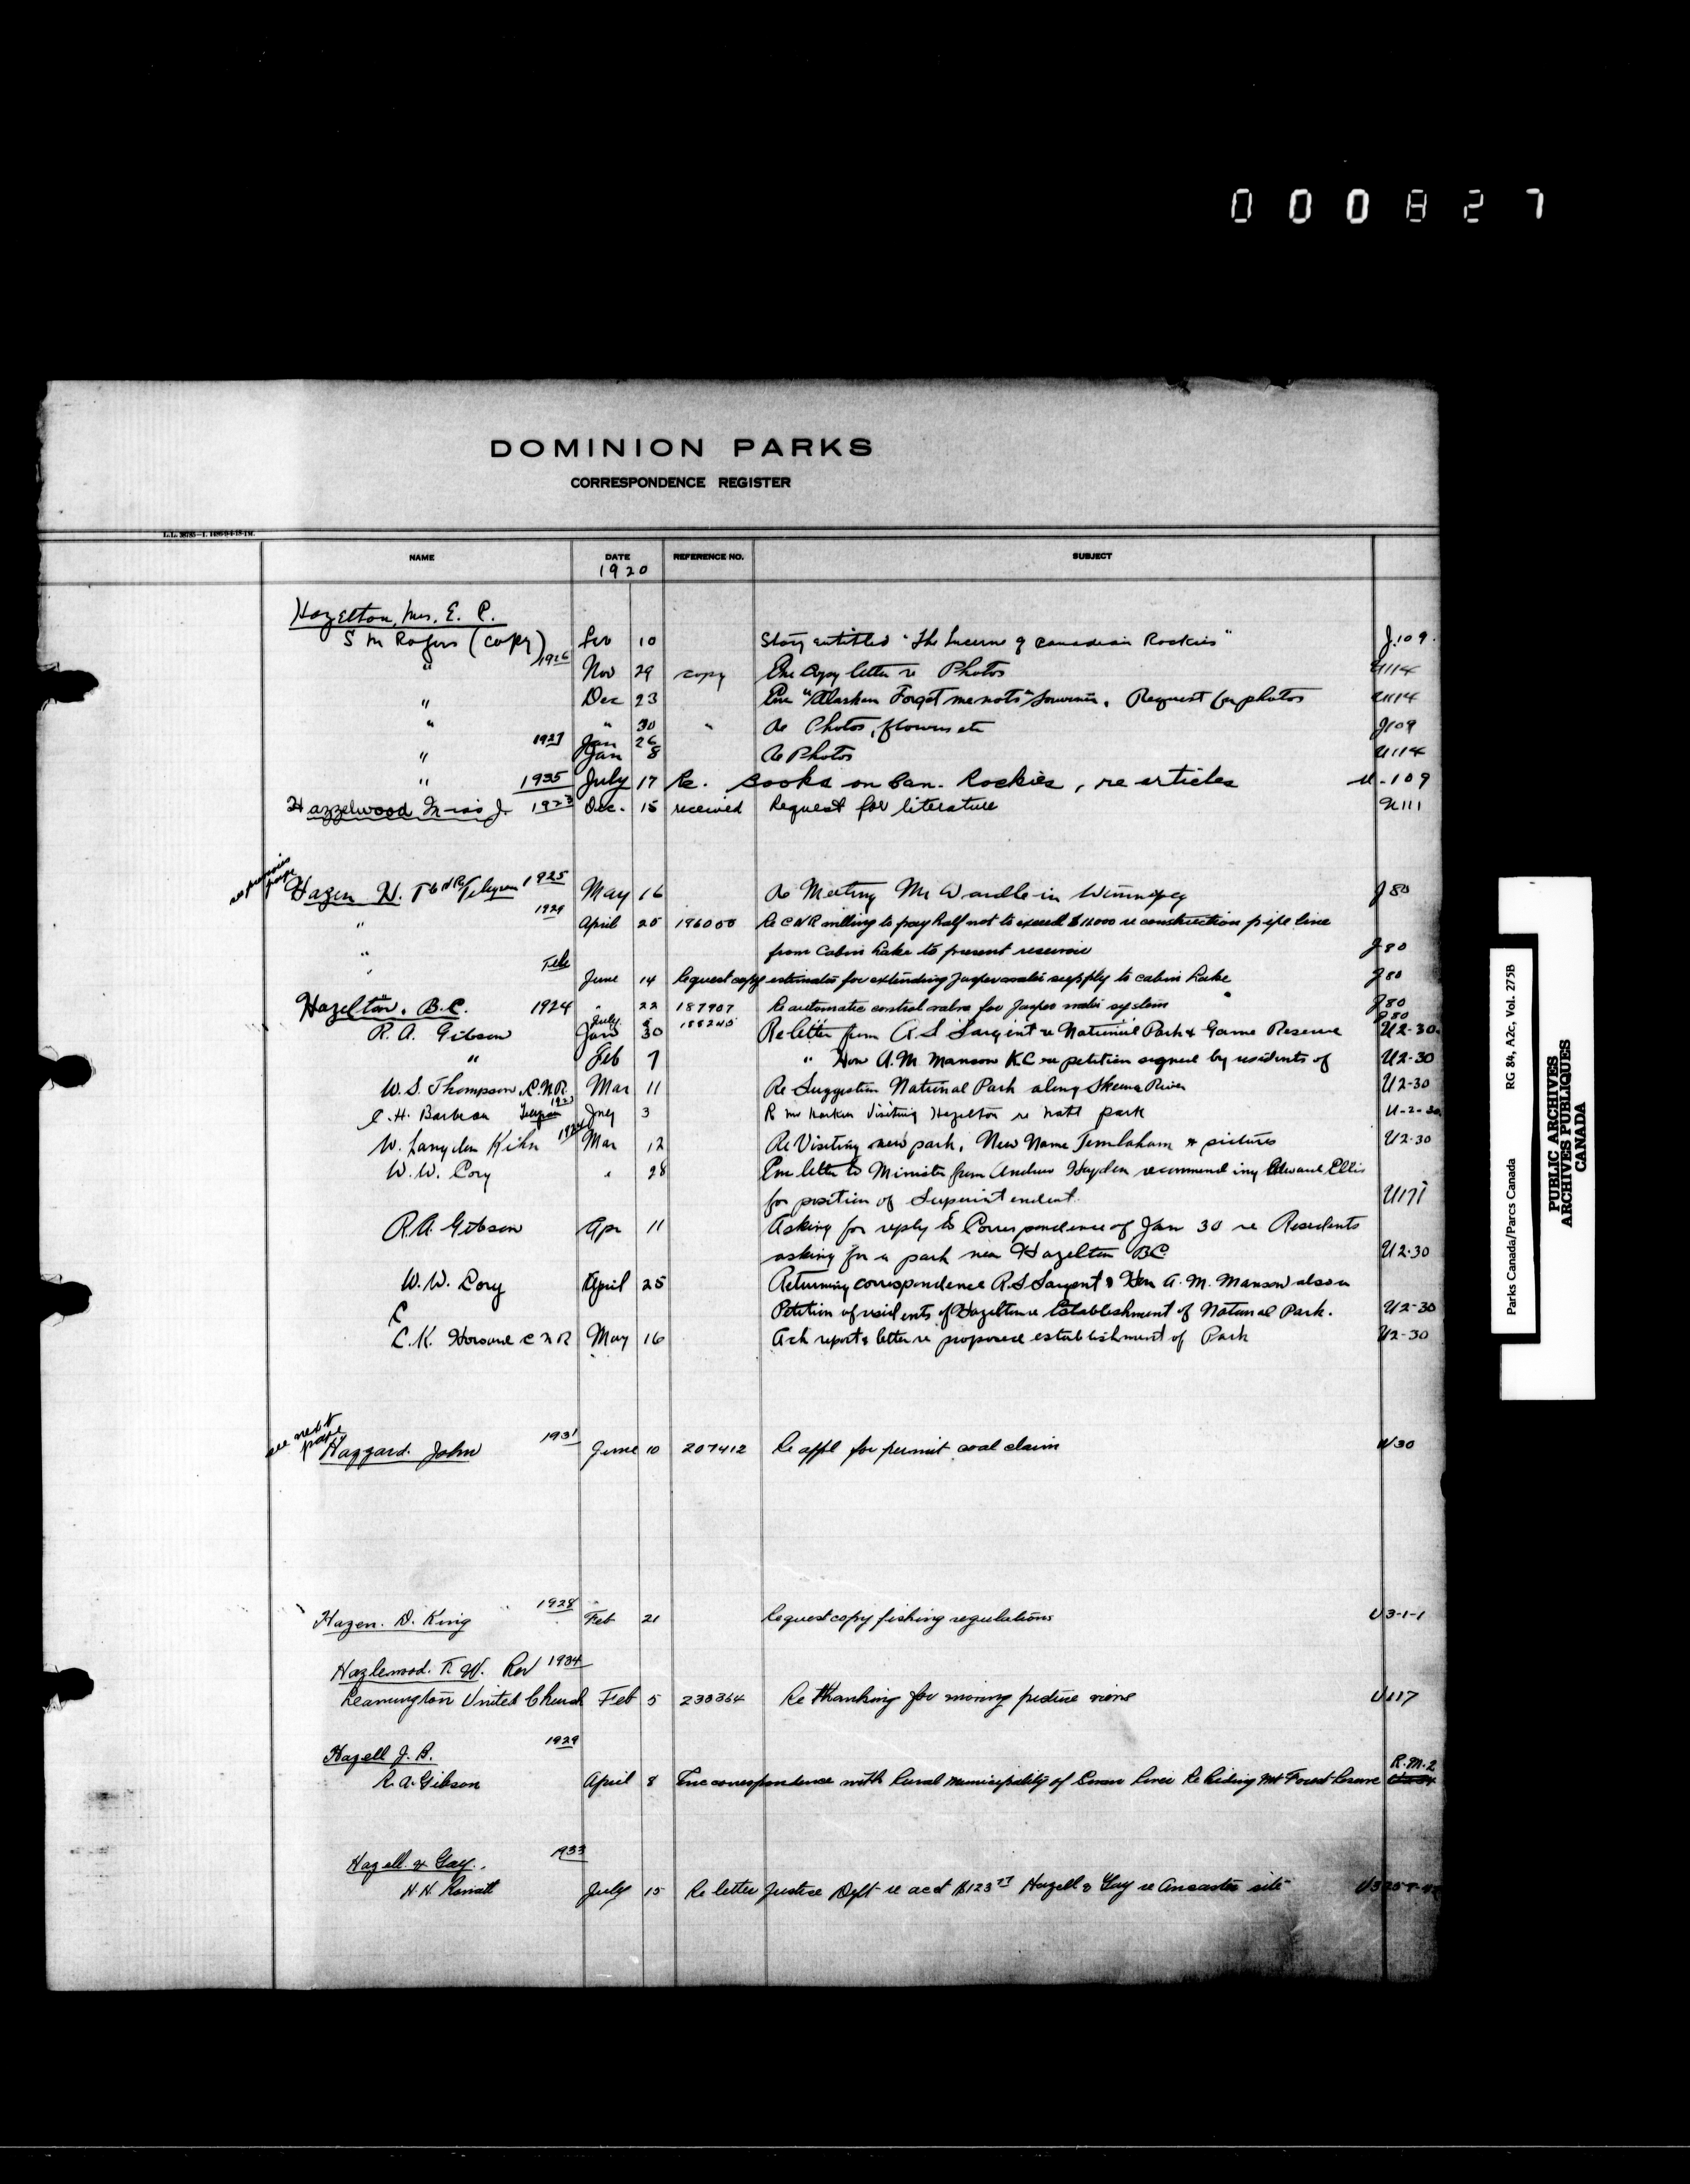 000827
DOMINION PARKS
CORRESPONDENCE REGISTER
NAME DATE REFERENCE NO. SUBJECT
1920
Hazelton, Mrs. E. C.
S M Rogers (copy) 10 Story entitled "The Lucerne of Canadian Rockies" J.109.
" 1926 Nov 29 copy Enc Copy letter re Photos U114
" Dec 23 Enc "Alaskan Forget me nots" Souvenir. Request for photos U114
" " 30 " Re Photos, flowers etc J109
1927 Jan 26
" Jan 8 Re Photos U114
" 1935 July 17 Re. Books on Can. Rockies, re articles U-109
Hazzelwood Miss J. 1923 Dec. 15 received Request for literature U111
see previous page
Hazen H. T. CNR Telegram 1925 May 16 Re Meeting Mr Wardle in Winnipeg J80
" 1929 April 25 186000 Re CNR willing to pay half not to exceed $11000 re construction pipe line
" from Cabin Lake to present reservoir J-80
" Tele June 14 Request copy estimates for extending Jasper water supply to Cabin Lake J80
" 22 187907 Re automatic control valve for Jasper water system J80
July 5 188245 J80
Hazelton, B.C. 1924
R. A. Gibson Jan 30 Re letter from R. S Sargent re National Park & Game Reserve U2-30
" Feb 7 " Hon A. M. Manson K.C re petition signed by residents of U2-30
W. S. Thompson, C.N.R. Mar 11 Re Suggestion National Park along Skeena River U2-30
C. H. Barbeau Telegram 1923 July 3 R Mr Harkin Visiting Hazelton re Natl park U-2-30
W. Langdon Kihn 1924 Mar 12 Re Visiting new park, New Name Temlaham & pictures U2-30
W. W. Cory " 28 Enc letter to Minister from Andrew Haydon recommending Edward Ellis
for position of Superintendent. U171
R. A. Gibson Apr 11 Asking for reply to Correspondence of Jan 30 re Residents
asking for a park near Hazelton BC. U2-30
W. W. Cory April 25 Returning correspondence R. S Sargent & Hon A. M. Manson also a
Petition of residents of Hazelton re Establishment of National Park. U2-30
C
C. K. Howard C N R May 16 Ack report & letter re proposed establishment of Park U2-30
see next page
Hazzard. John 1931 June 10 207412 Re appl for permit coal claim U30
Hazen. D. King 1928 Feb 21 Request copy fishing regulations U3-1-1
Hazlewood. T. W. Rev 1934
Leamington United Church Feb 5 230364 Re thanking for moving picture views U117
Hazell J. B. 1929
R. A. Gibson April 8 Enc correspondence with Rural Municipality of Swan River Re Riding Mt Forest Reserve R.M.2
Hazell. & Gay. 1933
July 15 Re letter Justice Dept re acct $123 Hazell & Gay re Ancaster site
Parks Canada/Parcs Canada RG 84, A2c, Vol. 275B
PUBLIC ARCHIVES
ARCHIVES PUBLIQUES
CANADA